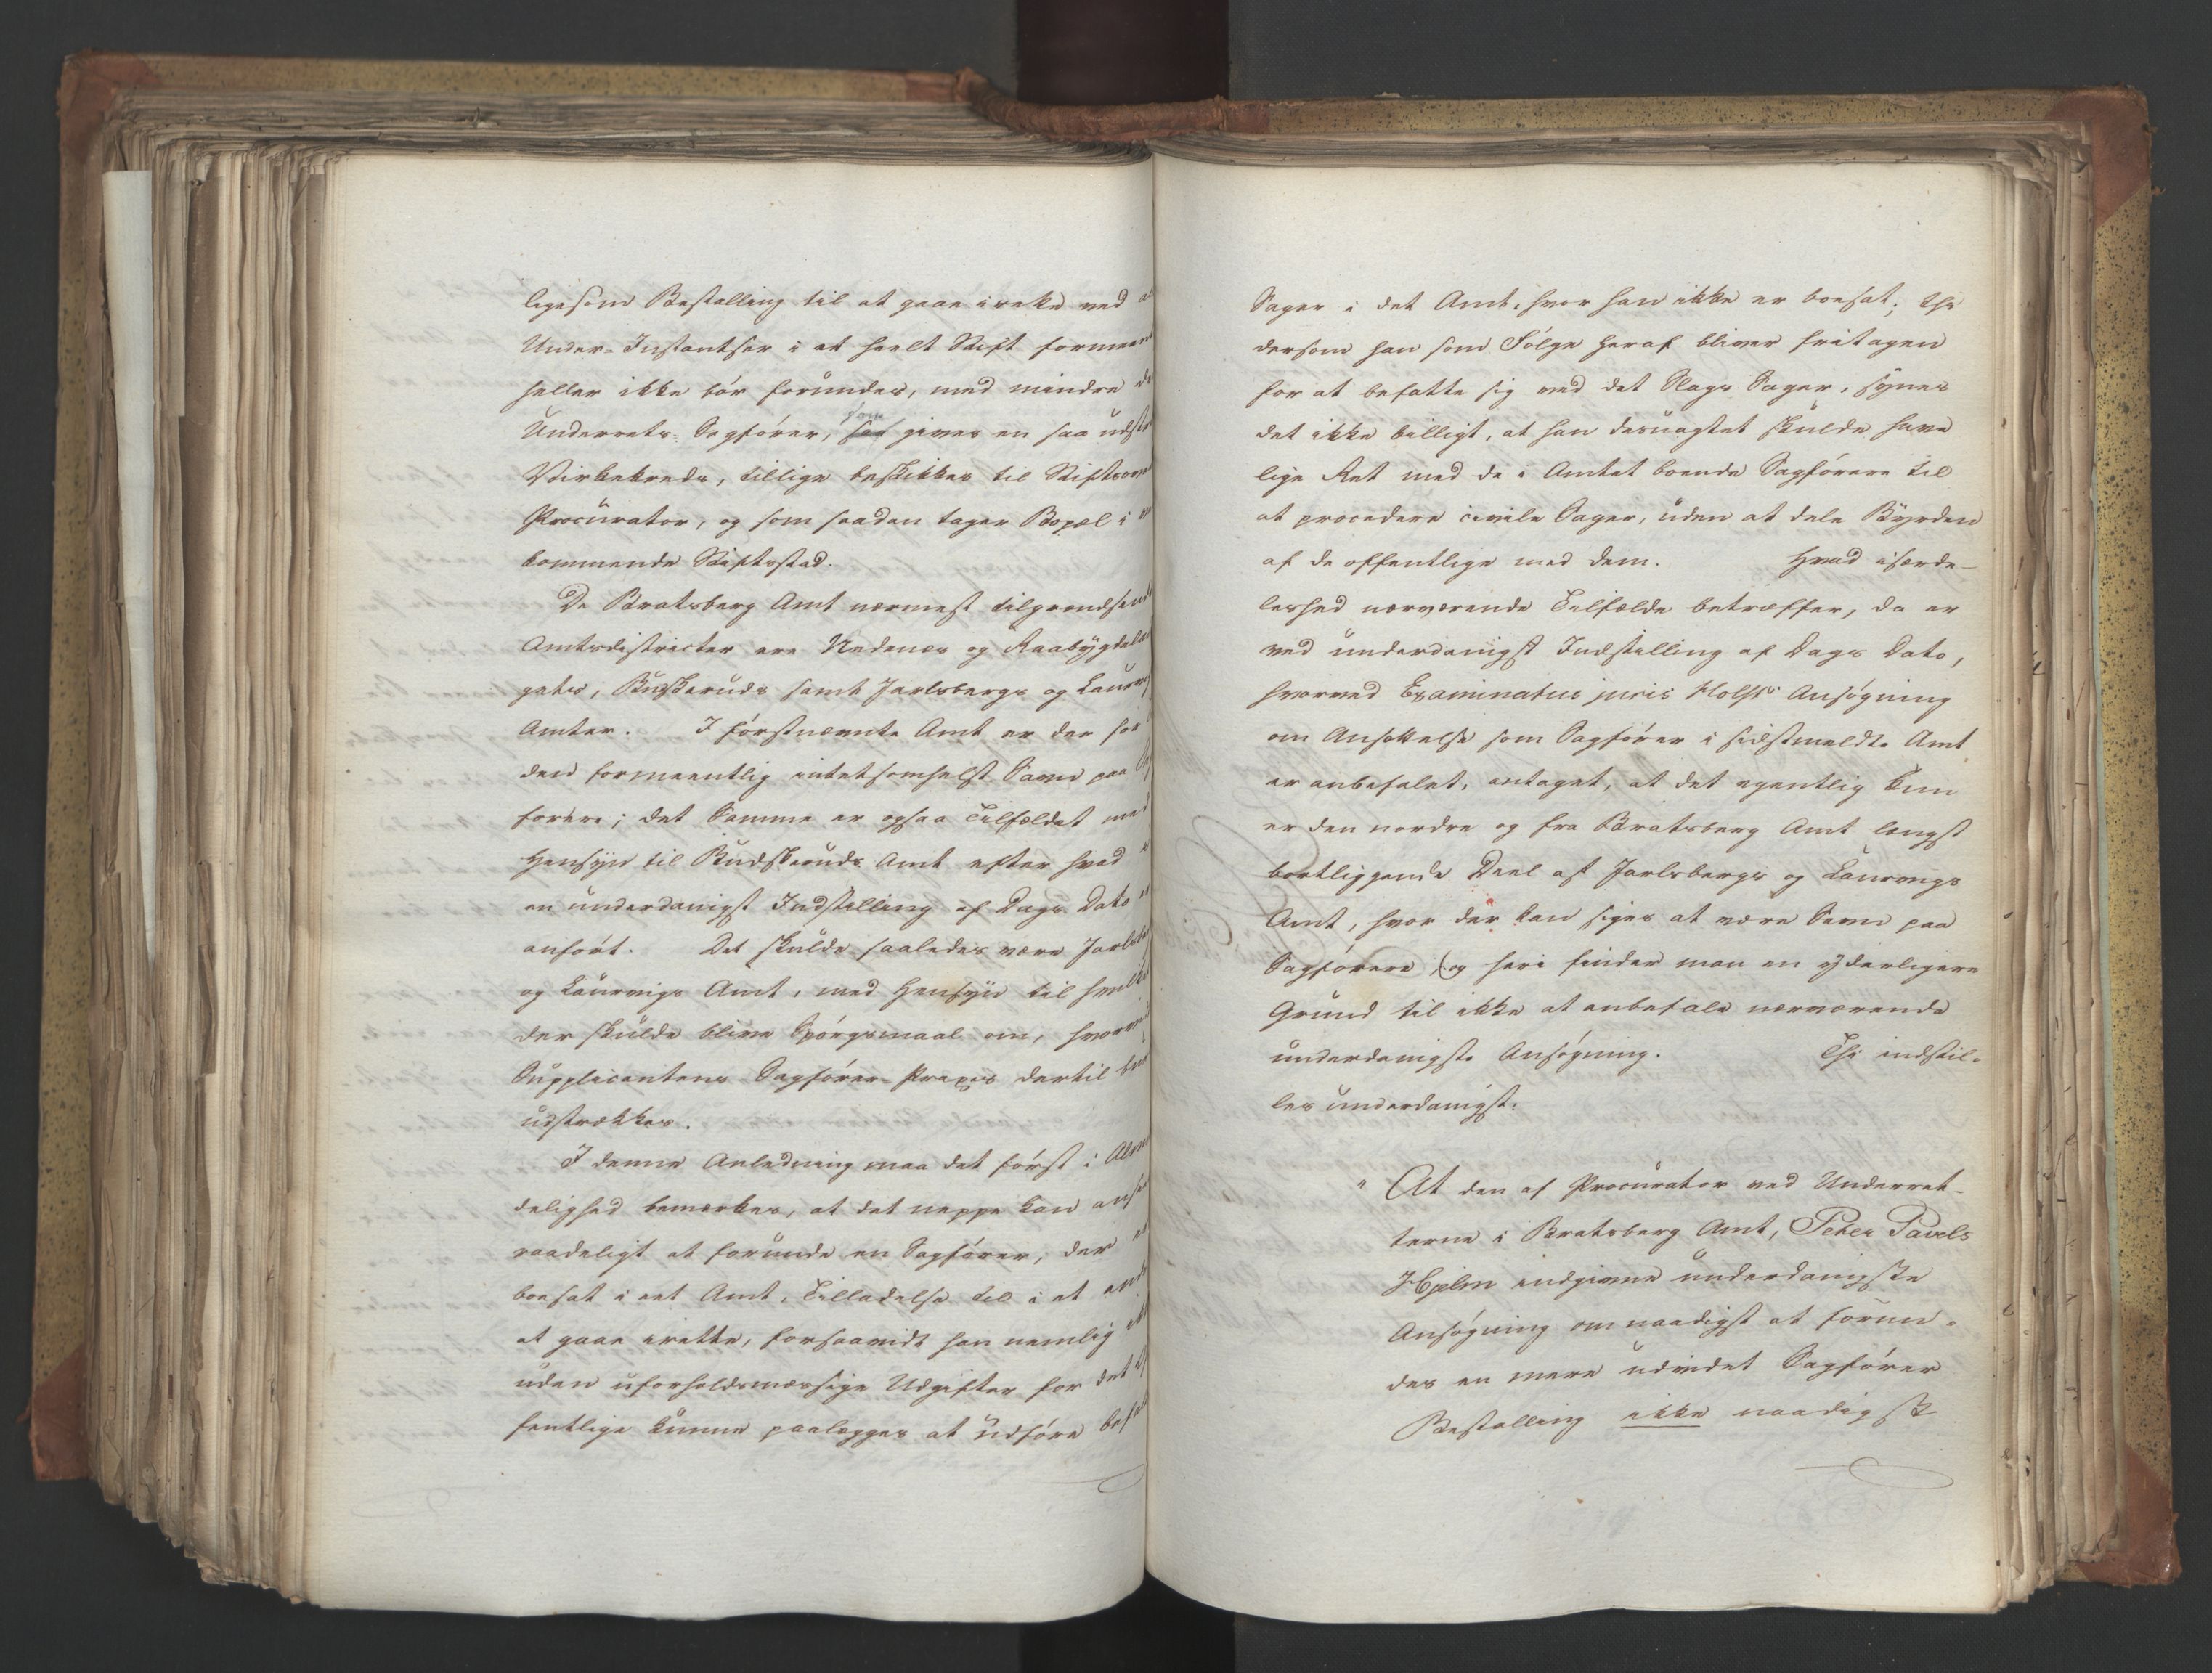 ligesom Bestalling til at gaae i rette ved
Under-Instantser i et heelt Stift formeent
heller ikke bør forundes, med mindre
Underrets-Sagfører, som gives en saa
Virkekreds, tillige beskikkes til
Procurator, og som saadan tager Bopæl i
kommende Stiftsstad.
De Bratsberg Amt nærmest tilgrændsende
Amtsdistricter ere Nedenæs og Raabygdela-
gets, Buskeruds samt Jarlsbergs og Laurvigs
Amter. I førstnævnte Amt er der for
den formeentlig intetsomhelst Savn paa
førere; det Samme er ogsaa Tilfældet med
Hensyn til Budskeruds Amt efter hvad i
en underdanigst Indstilling af Dags Dato er
anført. Det skulde saaledes være Jarlsbergs
og Laurvigs Amt, med Hensyn til hvilket
der skulde blive Spørgsmaal om, hvorvidt
Supplicantens Sagfører-Praxis dertil
udstrækkes.
I denne Anledning maa det først i Almin
delighed bemærkes, at det neppe kan ansees
raadeligt at forunde en Sagfører, der er
boesat i eet Amt, Tilladelse til i et andet
at gaae irette, forsaavidt han nemlig ikke
uden uforholdsmæssige Udgifter for det Of
fentlige kunne paalægges at udføre
Sager i det Amt, hvor han ikke er boesat; thi
dersom han som Følge heraf bliver fritagen
for at befatte sig med det Slags Sager, synes
det ikke billigt, at han desuagtet skulde have
lige Ret med de i Amtet boende Sagførere til
at procedere civile Sager, uden at dele Byrden
af de offentlige med dem. Hvad isærde-
leshed nærværende Tilfælde betræffer, da er
ved underdanigst Indstilling af Dags Dato,
hvorved Examinatus juris Holsts Ansøgning
om Ansættelse som Sagfører i sidstmeldte Amt
er anbefalet, antaget, at det egentlig kun
er den nordre og fra Bratsberg Amt længst
bortliggende Deel af Jarlsbergs og Laurvigs
Amt, hvor der kan siges at være Savn paa
Sagførere (og heri finder man en yderligere
Grund til ikke at anbefale nærværende
underdanigste Ansøgning. Thi indstil-
les underdanigst:
" At den af Procurator ved Underret-
terne i Bratsberg Amt, Peter Pavels
Hjelm indgivne underdanigste
Ansøgning om naadigst at forun-
des en mere udvidet Sagfører
Bestalling ikke naadigst